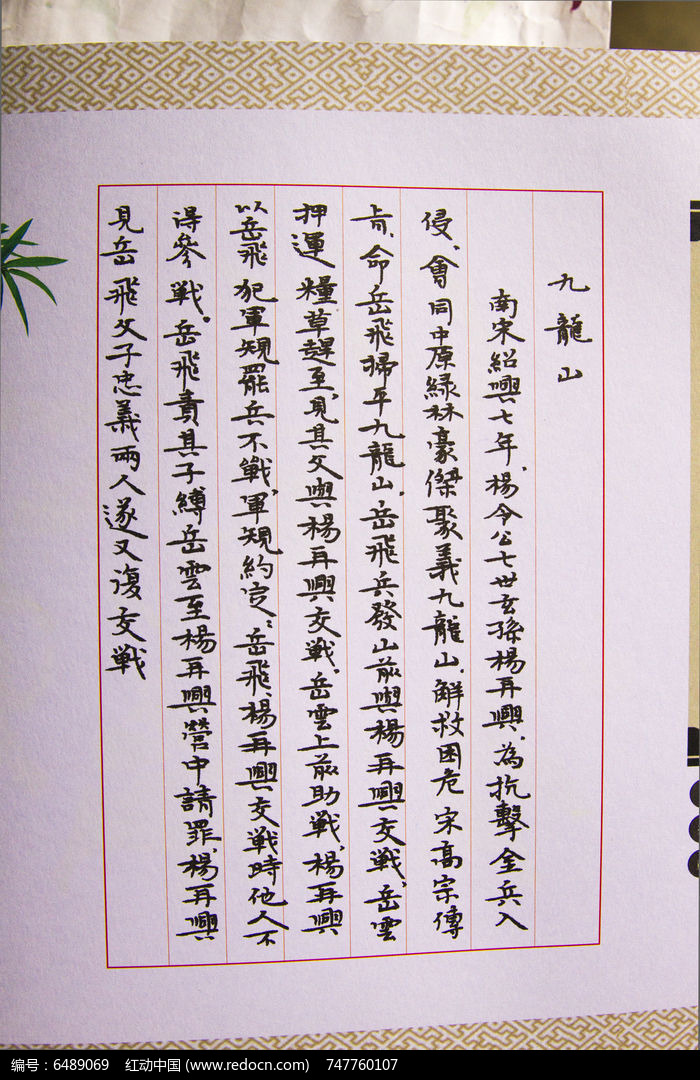 九龍山
南宋紹興七年，楊令公七世玄孫楊再興，為抗擊金兵入
侵，會同中原緑林豪傑聚義九龍山，解救困危宋高宗傳
旨，命岳飛掃平九龍山，岳飛兵發山前與楊再興交戰，岳雲
押運糧草趕至，見其父與楊再興交戰，岳雲上前助戰，楊再興
以岳飛犯軍規罷兵不戰，軍規約定：岳飛、楊再興交戰時他人不
得參戰。岳飛責其子縛岳雲至楊再興營中請罪，楊再興
見岳飛父子忠義兩人遂又復交戰
编号：6489069 红动中国 (www.redocn.com) 747760107